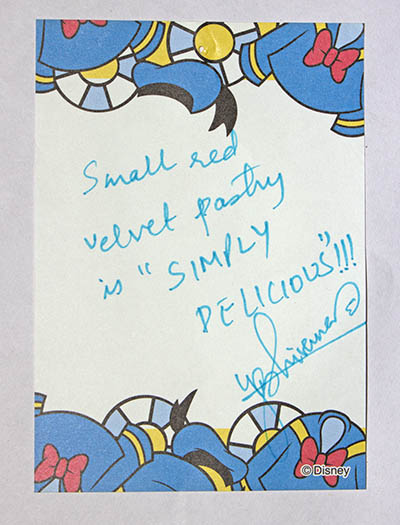 Small red
velvet pastry
is "SIMPLY
DELICIOUS"!!!
©Disney